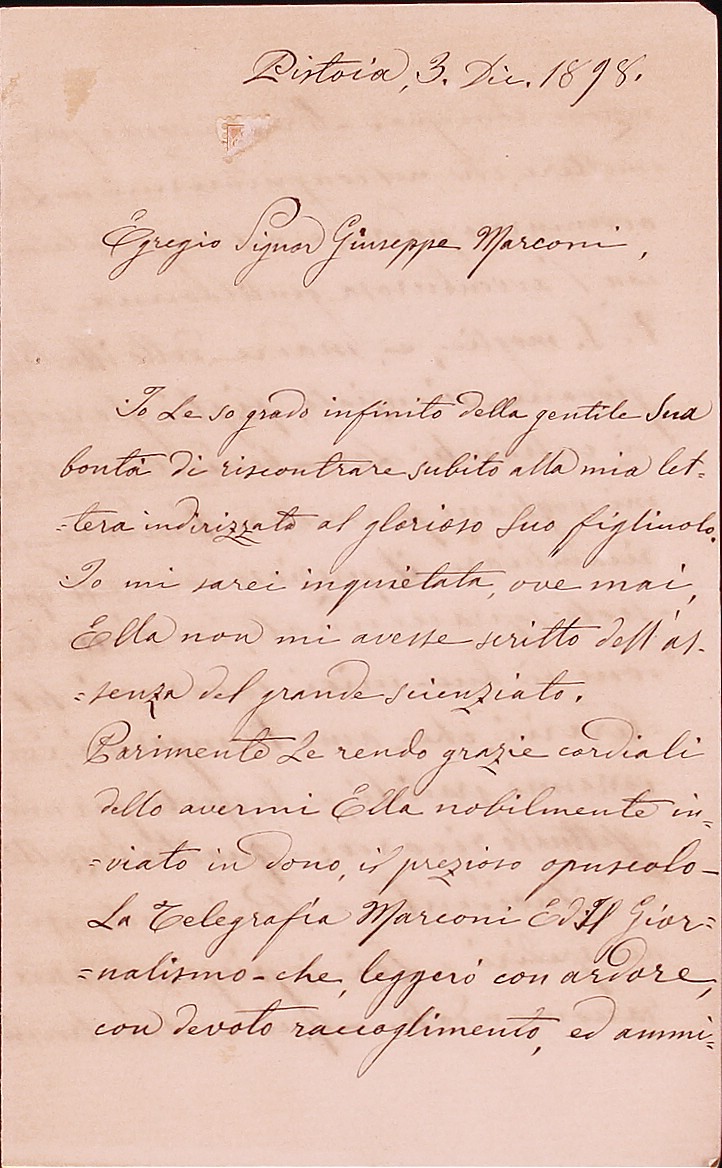 Pistoia, 3. Dic. 1898.
Egregio Signor Giuseppe Marconi,
Io Le so grado infinito della gentile Sua
bontà di riscontrare subito alla mia let-
-tera indirizzata al glorioso Suo figliuolo.
Io mi sarei inquietata, ove mai,
Ella non mi avesse scritto dell'as-
-senza del grande scienziato.
Parimente Le rendo grazie cordiali
dello avermi Ella nobilmente in-
-viato in dono, il prezioso opuscolo-
La Telegrafia Marconi Ed Il Gior-
-nalismo-che, leggerò con ardore,
con devoto raccoglimento, ed ammi-